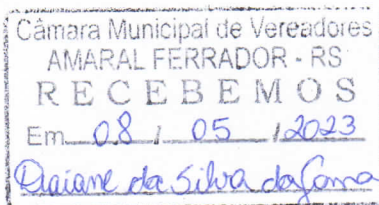 Câmara Municipal de Vereadores
AMARAL FERRADOR - RS
RECEBEMOS
Em 08 / 05 / 2023
Daiane da Silva da Gama